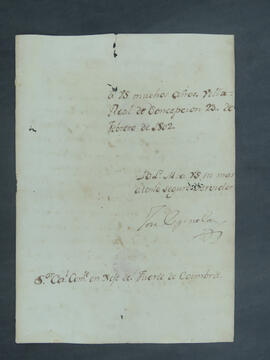 à VS muchos años. Villa
Real de Concepcion 23. de
Febrero de 1802.
B. L. M. a VS. su mas
atento seguro Servidor
José Espinola
Sor. Coml. Comte. en Xefe del Fuerte de Coimbra.